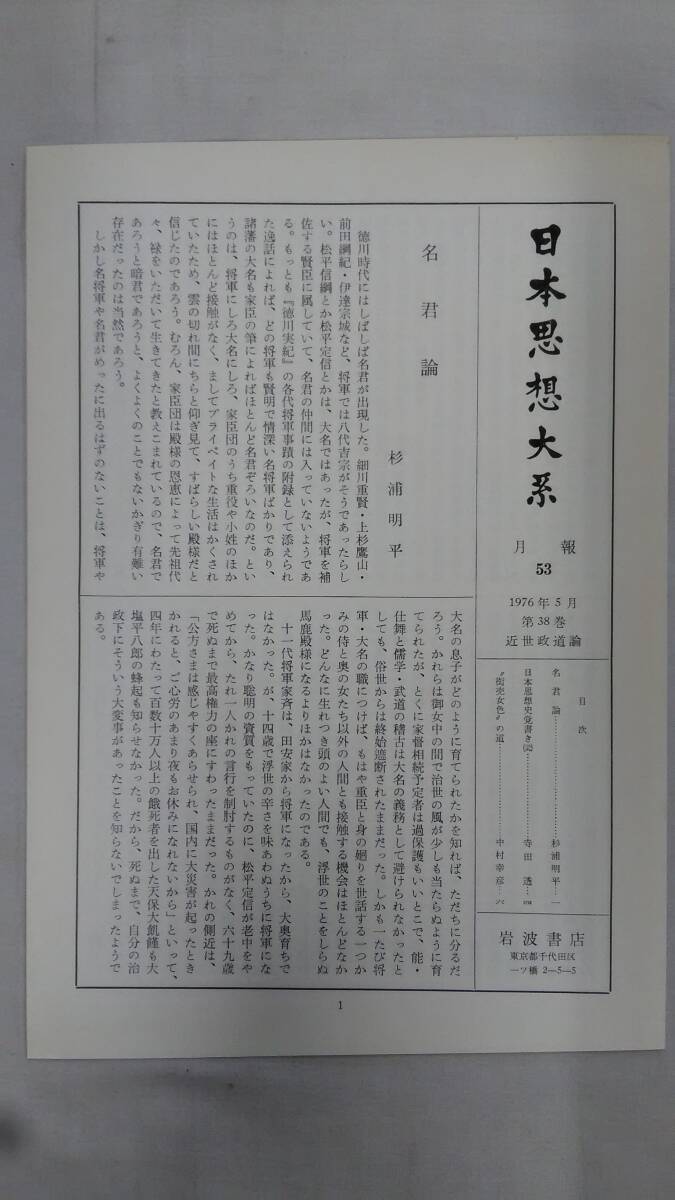 日本思想大系
月報
53
1976年5月
第38巻
近世政道論
目次
名君論……………杉浦明平…一
日本思想史覚書き……………寺田透…四
〝街売女色〟の道……………中村幸彦…六
岩波書店
東京都千代田区
一ツ橋2―5―5
名君論
杉浦明平
徳川時代にはしばしば名君が出現した。細川重賢・上杉鷹山・
前田綱紀・伊達宗城など、将軍では八代吉宗がそうであったらし
い。松平信綱とか松平定信とかは、大名ではあったが、将軍を補
佐する賢臣に属していて、名君の仲間には入っていないようであ
る。もっとも『徳川実紀』の各代将軍事蹟の附録として添えられ
た逸話によれば、どの将軍も賢明で情深い名将軍ばかりであり、
諸藩の大名も家臣の筆によればほとんど名君ぞろいなのだ。とい
うのは、将軍にしろ大名にしろ、家臣団のうち重役や小姓のほか
にはほとんど接触がなく、ましてプライベイトな生活はかくされ
ていたため、雲の切れ間にちらと仰ぎ見て、すばらしい殿様だと
信じたのであろう。むろん、家臣団は殿様の恩恵によって先祖代
々、禄をいただいて生きてきたと教えこまれているので、名君で
あろうと暗君であろうと、よくよくのことでもないかぎり有難い
存在だったのは当然であろう。
しかし名将軍や名君がめったに出るはずのないことは、将軍や
大名の息子がどのように育てられたかを知れば、ただちに分るだ
ろう。かれらは御女中の間で治世の風が少しも当たらぬように育
てられたが、とくに家督相続予定者は過保護もいいとこで、能・
仕舞と儒学・武道の稽古は大名の義務として避けられなかったと
しても、俗世からは終始遮断されたままだった。しかも一たび将
軍・大名の職につけば、もはや重臣と身の廻りを世話する一つか
みの侍と奥の女たち以外の人間とも接触する機会はほとんどなか
った。どんなに生れつき頭のよい人間でも、浮世のことをしらぬ
馬鹿殿様になるよりほかはなかったのである。
十一代将軍家斉は、田安家から将軍になったから、大奥育ちで
はなかった。が、十四歳で浮世の辛さを味あわぬうちに将軍にな
った。かなり聡明の資質をもっていたのに、松平定信が老中をや
めてから、たれ一人かれの言行を制肘するものがなく、六十九歳
で死ぬまで最高権力の座にすわったままだった。かれの側近は、
「公方さまは感じやすくあらせられ、国内に大災害が起ったとき
かれると、ご心労のあまり夜もお休みになれないから」といって、
四年にわたって百数十万人以上の餓死者を出した天保大飢饉も大
塩平八郎の蜂起も知らせなかった。だから、死ぬまで、自分の治
政下にそういう大変事があったことを知らないでしまったようで
ある。
1